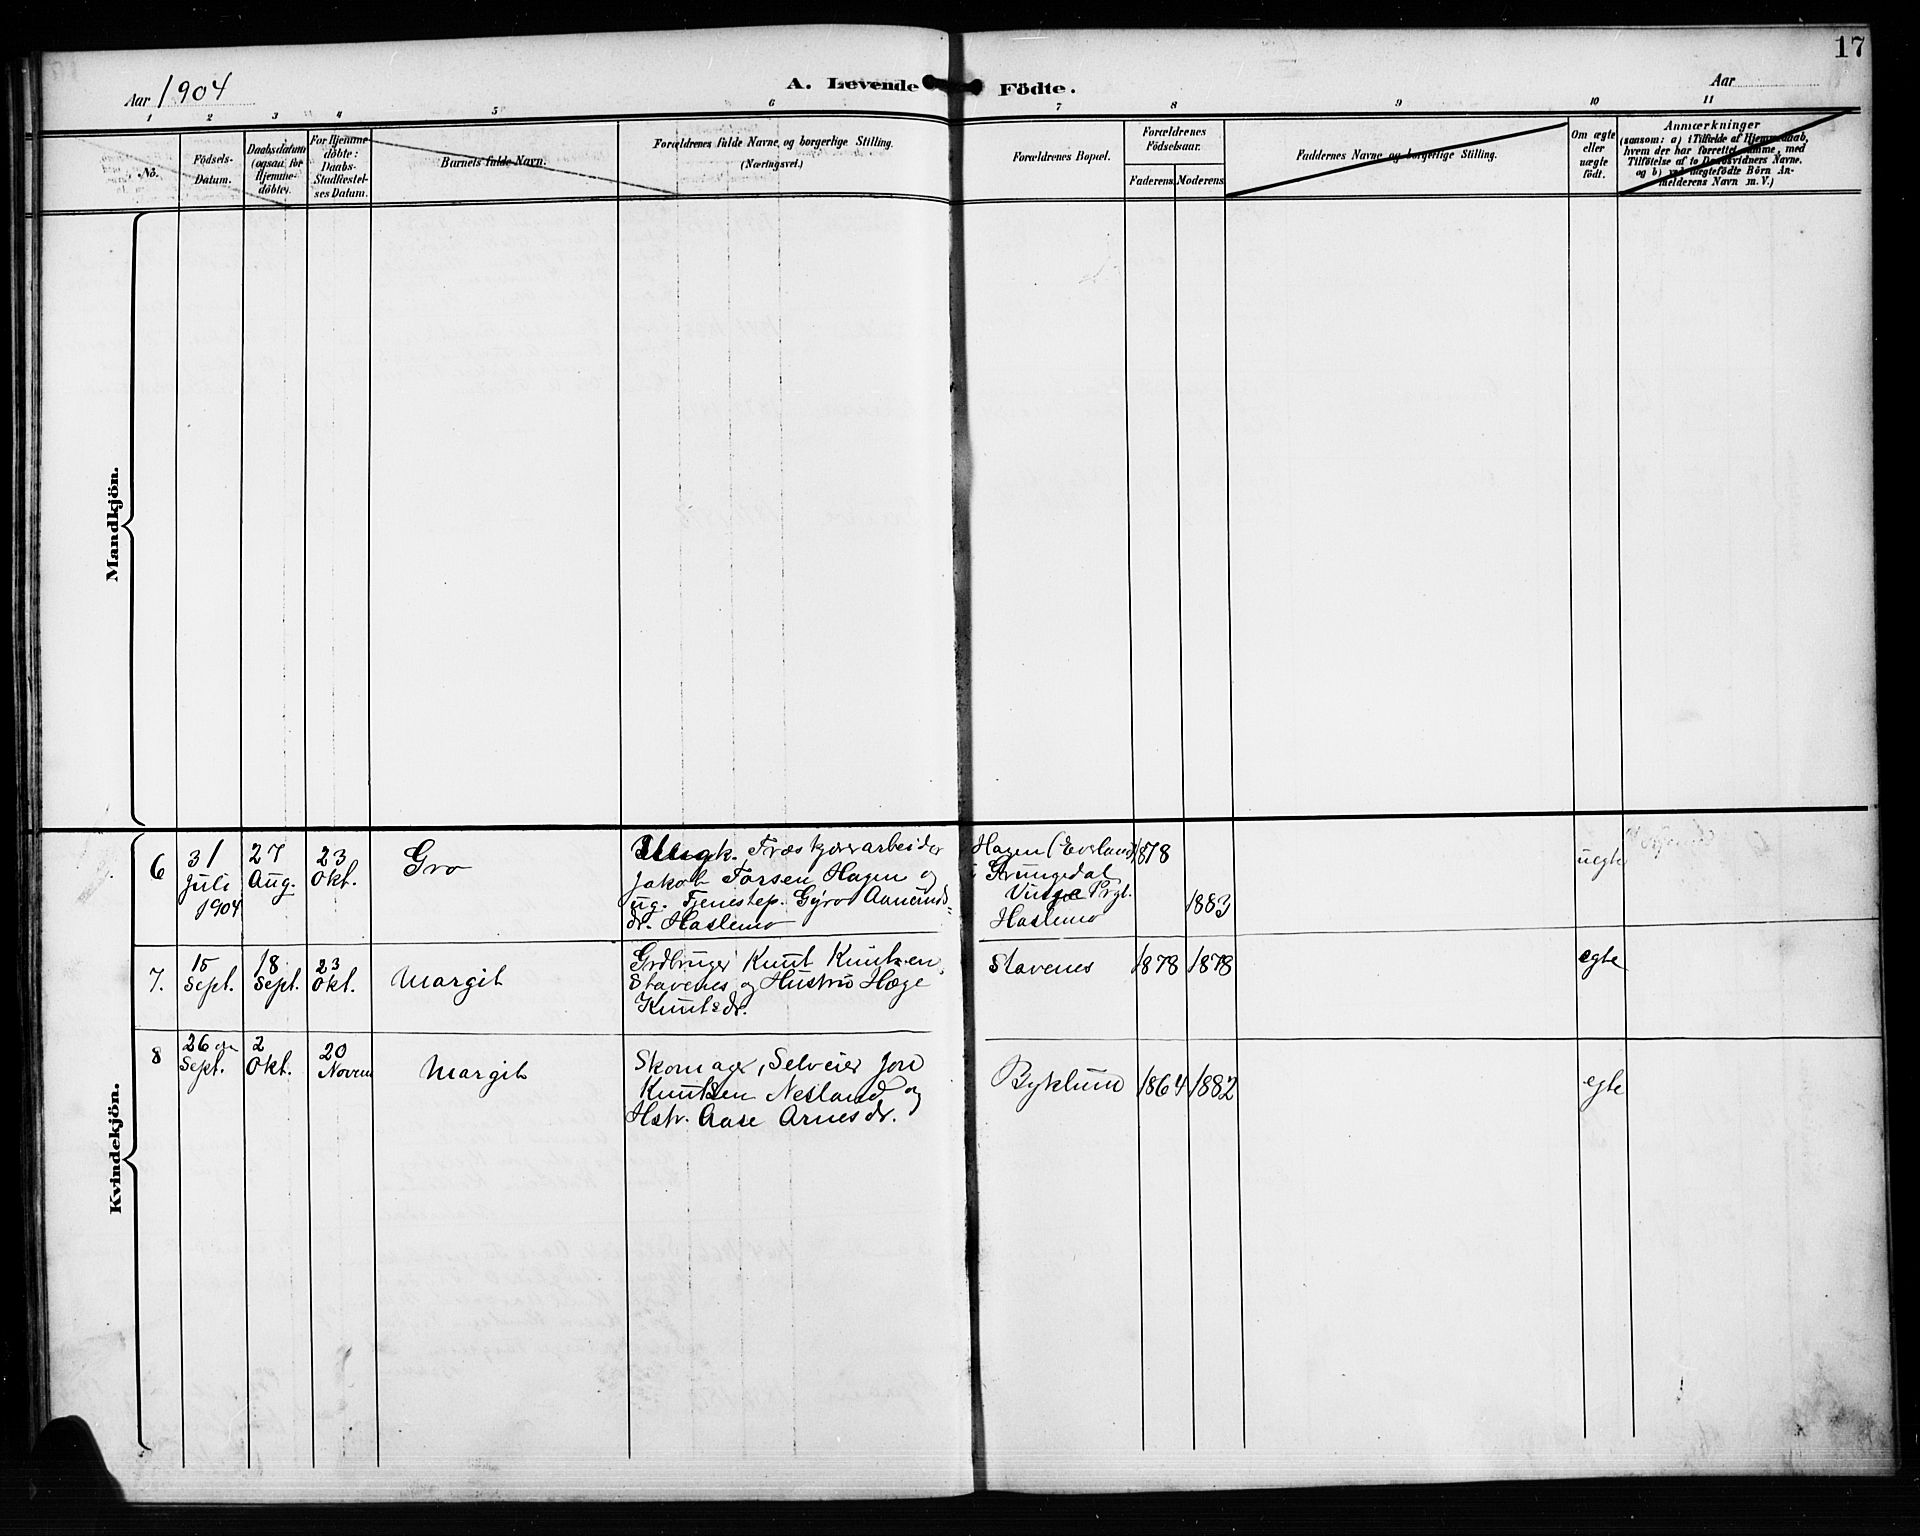 17
Aar 1904
A. Levende Födte.
Aar
1 2 3 4 5 6 7 8 9 10 11
No.
Födsels-
Datum.
Daabsdatum
(ogsaa for
Hjemme-
döbte).
For Hjemme-
döbte:
Daabs-
Stadfæstel-
ses Datum.
Barnets fulde Navn.
Forældrenes fulde Navne, og borgerlige Stilling.
(Næringsvei.)
Forældrenes Bopæl.
Forældrenes
Födselsaar.
Faderens.
Moderens.
Faddernes Navne og borgerlige Stilling.
Om ægte
eller
uægte
født.
Anmærkninger
(saasom: a) i Tilfælde af Hjemmedaab,
hvem der har forrettet samme, med
Tilföielse af to Daabsvidners Navne.
og b) ved uægtefödte Börn An-
melderens Navn m. V.)
Mandkjön.
Kvindekjön.
6
31
Juli
1904
27
Aug.
23
Okt.
Gro
Ungk. Træskjærerarbeider
Jakob Torsen Hagen og
ug. Tjenestep. Gyro Aanunds-
dr. Haslemo
Hagen (Everland)
i Grungedal
Vinje Prgl.
Haslemo
1878
1883
uegte
7.
15
Sept.
18
Sept.
23
Okt.
Margit
Grdbruger Knut Knutsen
Stavenes og Hustru Hæge
Knutsdr.
Stavenes
1878
1878
egte
8
26
Sept.
2
Okt.
20
Novem
Margit
Skomager, Selveier Jon
Knutsen Nesland og
Hstr. Aase Arnesdr.
Byklum
1864
1882
egte